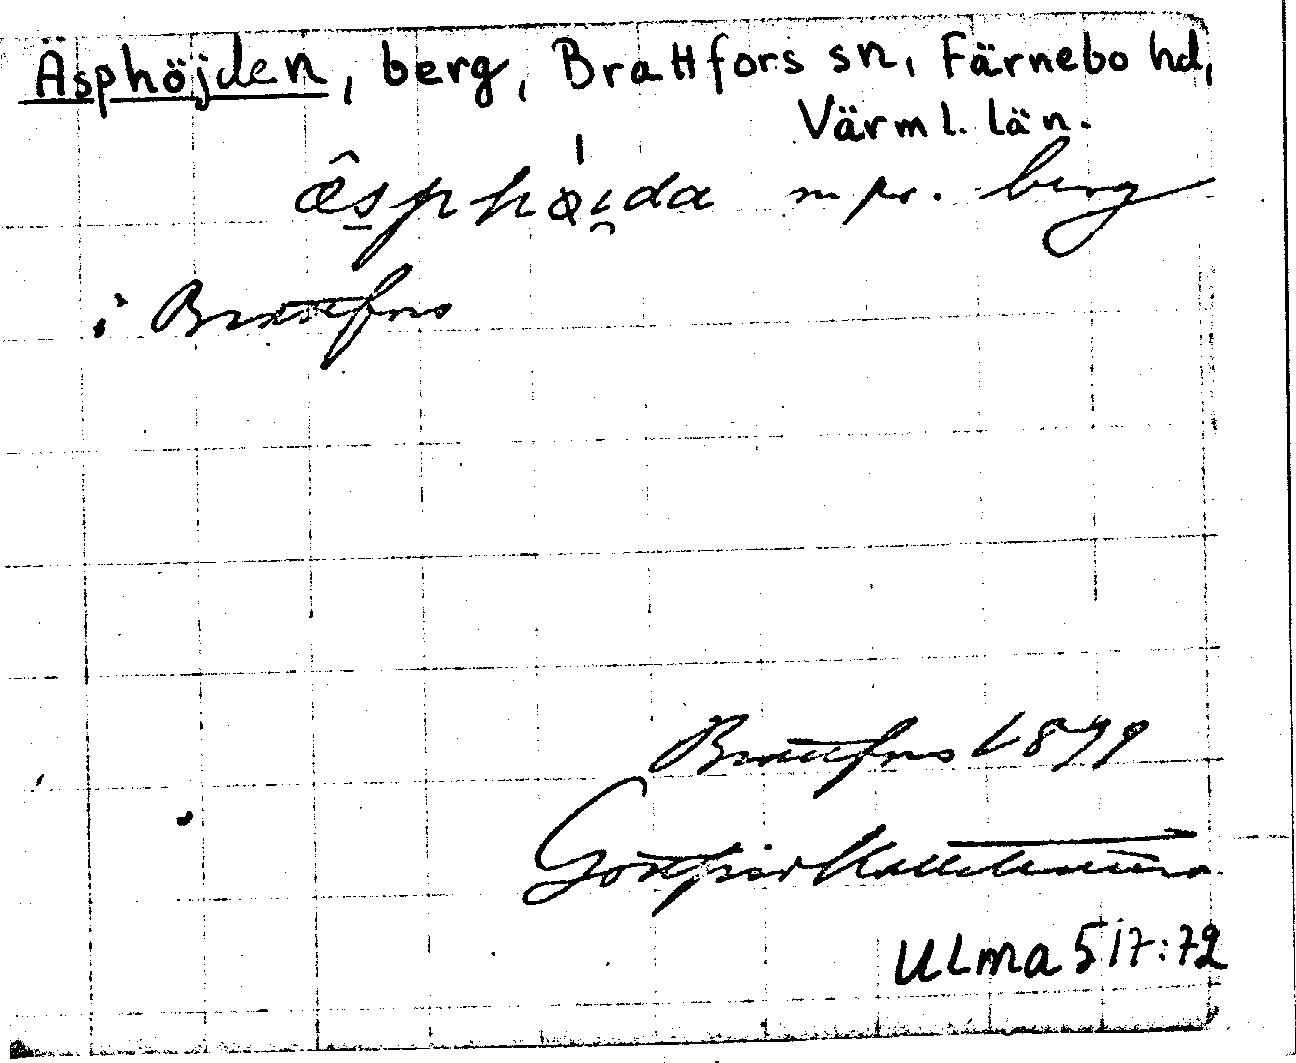 Äsphöjden, berg, Brattfors sn, Färnebo hd,
Värml. län.
æ̂sphøi̯da m pr. berg
i Brattfors
Brattfors 1899
Gottfrid Kallstenius
ULMA 517:72